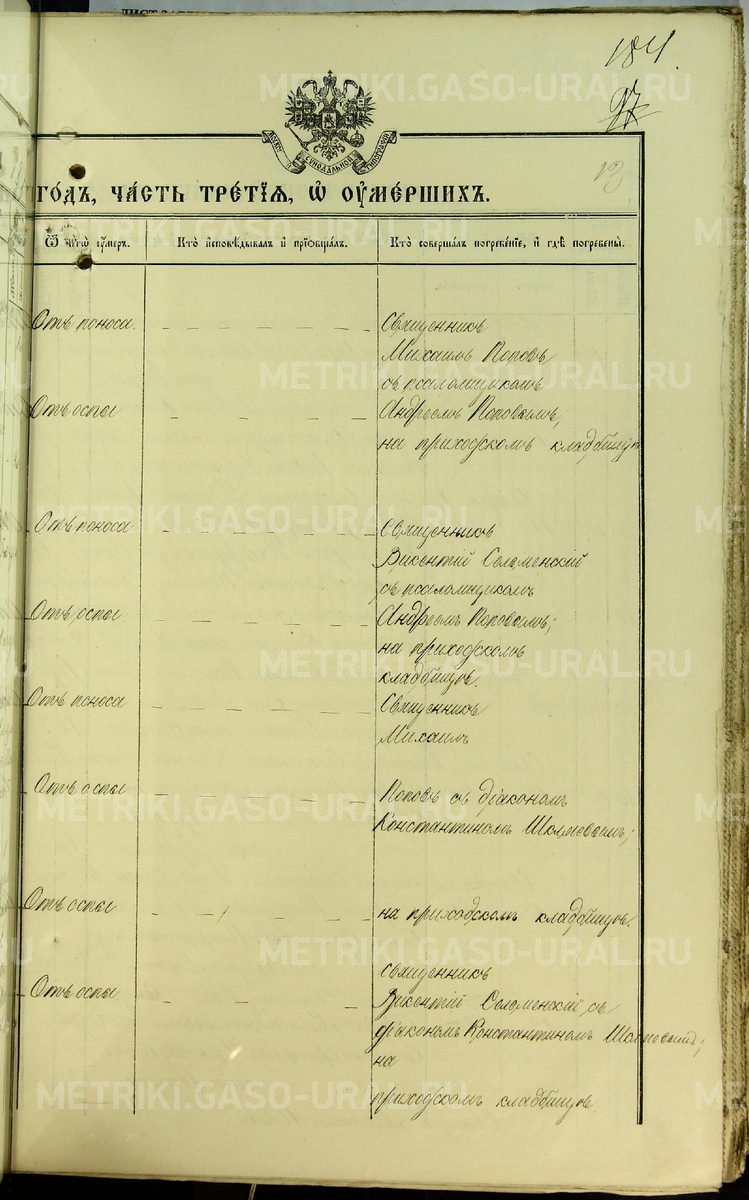 184.
13
ГОДЪ, ЧАСТЬ ТРЕТІЯ, Ѡ ОУМЕРШИХЪ.
Ѿ чегѡ оумеръ.
Кто исповѣдывалъ и пріобщалъ.
Кто совершалъ погребеніе, и гдѣ погребены.
Отъ поноса.
Священникъ
Михаилъ Поповъ
съ псаломщикомъ
Отъ оспы
Андреемъ Поповымъ,
на приходскомъ кладбищѣ
Отъ поноса
Священникъ
Викентій Селеменскій
съ псаломщикомъ
Отъ оспы
Андреемъ Поповымъ;
на приходскомъ
кладбищѣ.
Отъ поноса
Священникъ
Михаилъ
Отъ оспы
Поповъ съ діакономъ
Константиномъ
Отъ оспы
на приходскомъ кладбищѣ.
Священникъ
Отъ оспы.
Викентій Селеменскій съ
діакономъ Константиномъ
на
приходскомъ кладбищѣ
METRIKI.GASO-URAL.RU